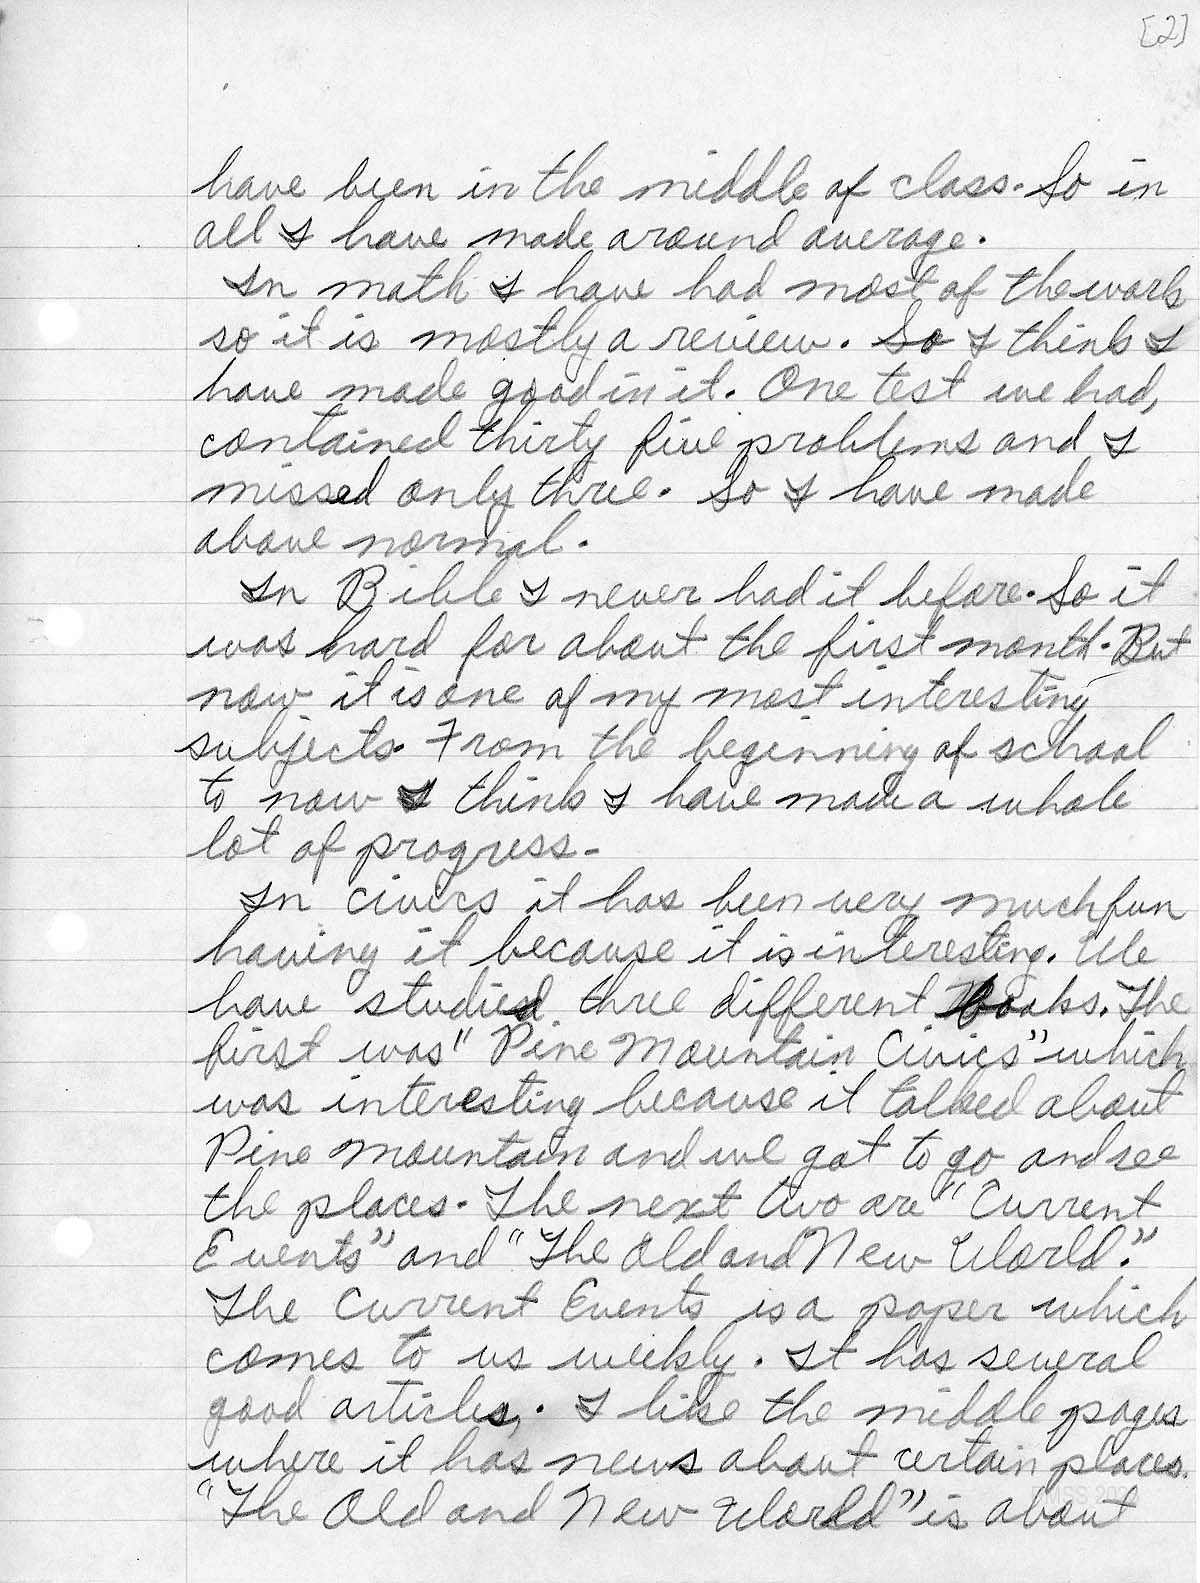 [2]
have been in the middle of class. So in
all I have made around average.
In math I have had most of the work
so it is mostly a review. So I think I
have made good in it. One test we had,
contained thirty five problems and I
missed only three. So I have made
above normal.
In Bible I never had it before. So it
was hard for about the first month. But
now it is one of my most interesting
subjects. From the beginning of school
to now I think I have made a whole
lot of progress.
In civics it has been very much fun
having it because it is interesting. We
have studied three different books. The
first was "Pine Mountain Civics" which
was interesting because it talked about
Pine Mountain and we got to go and see
the places. The next two are "Current
Events" and "The Old and New World."
The Current Events is a paper which
comes to us weekly. It has several
good articles. I like the middle pages
where it has news about certain places.
"The Old and New World" is about